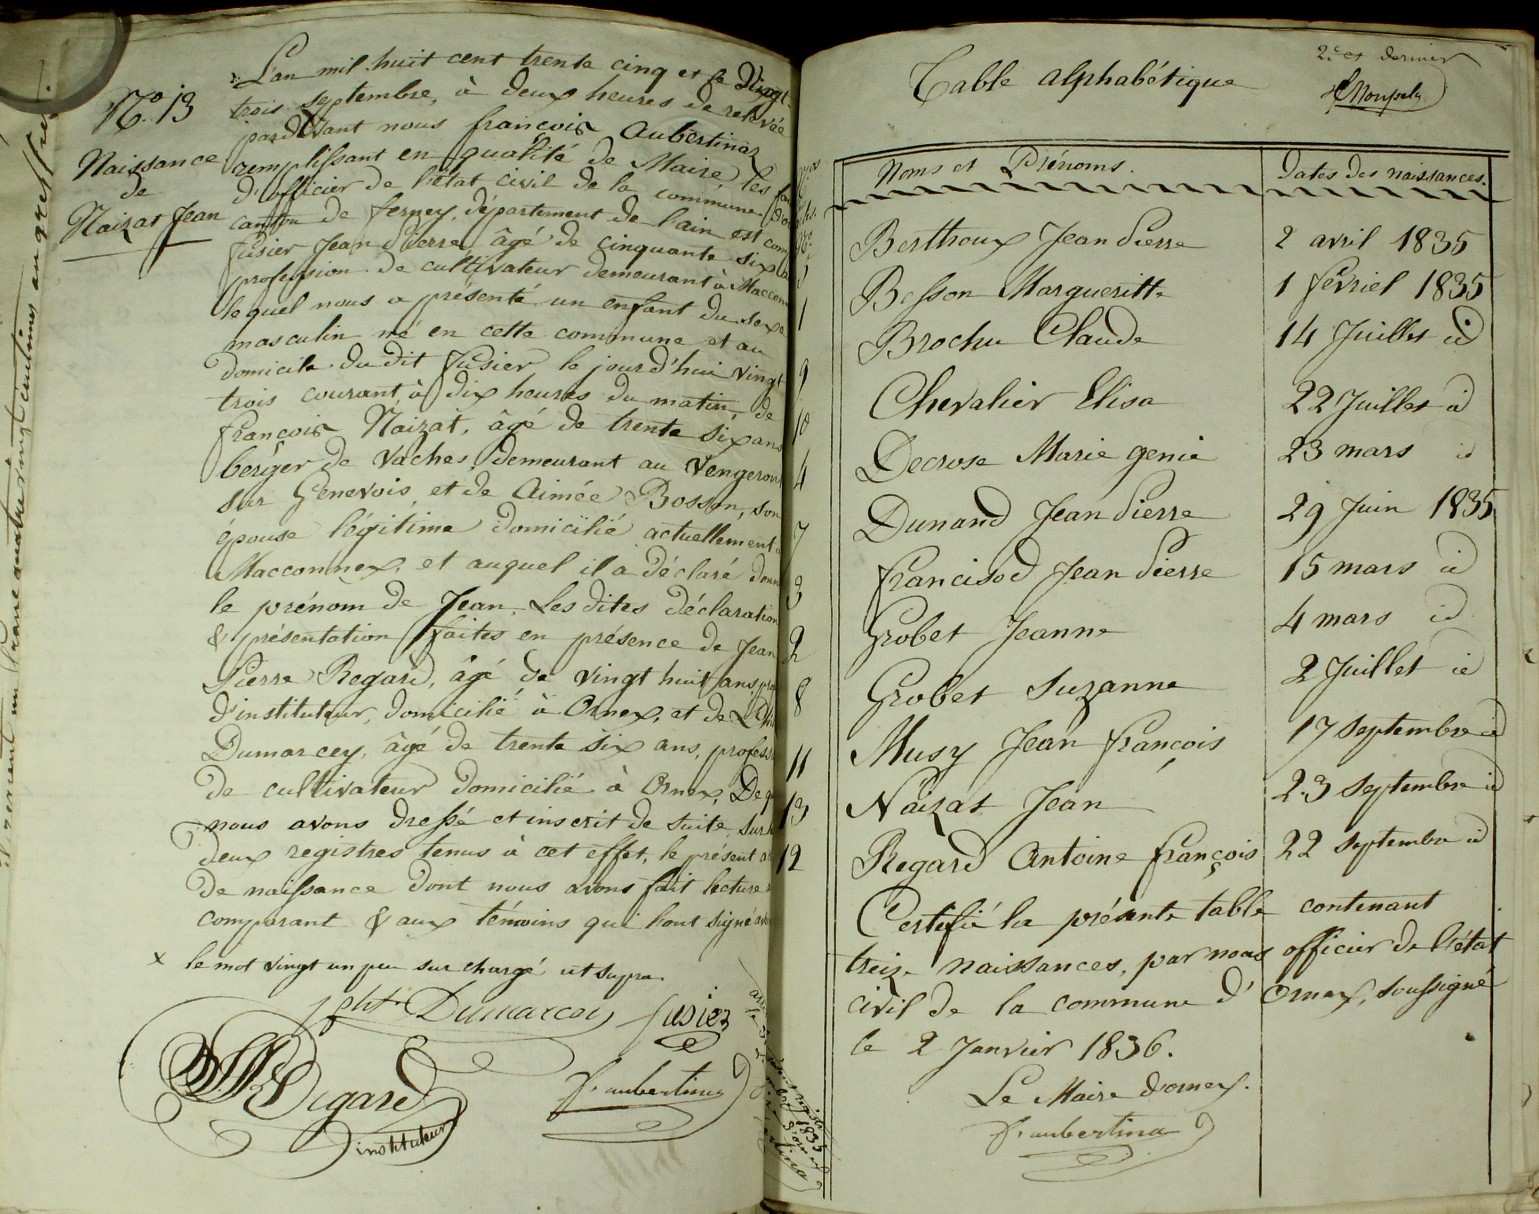 N.º 13
Naissance
de
Naizat Jean
L'an mil huit cent trente cinq et le Vingt
trois septembre, à deux heures de relevée
pardevant nous françois Aubertinaz
remplissant en qualité de Maire, les fon
d'officier de l'état civil de la commune d'Or
canton de ferney, département de l'ain est com
fusier Jean Pierre, âgé de cinquante six a
profession de cultivateur demeurant à Maccon
lequel nous a présenté un enfant du sexe
masculin né en cette commune et au
domicile du dit fusier le jourd'hui vingt
trois courant, à dix heures du matin, de
françois Naizat, âgé de trente six ans
berger de vaches, demeurant au Vengeron
sur Genevois, et de Aimée Bosson, son
épouse légitime domicilié actuellement à
Macconnex, et auquel il a déclaré donn
le prénom de Jean. Les dites déclaration
& présentation faites en présence de Jean
Pierre Regard, âgé de vingt huit ans, pro
d'instituteur, domicilié à Ornex, et de
Dumarcey, âgé de trente six ans, profess
de cultivateur domicilié à Ornex, De q
nous avons dressé et inscrit de suite sur l
deux registres tenus à cet effet, le présent a
de naissance dont nous avons fait lecture
comparant & aux témoins qui l'ont signé av
x le mot vingt un peu sur chargé ut supra.
Dumarcey fusier
Regard f. aubertinaz
instituteur
2.e et dernier
Table alphabétique
Noms et Prénoms. Dates des naissances.
Berthoux Jean Pierre 2 avril 1835
1 Besson Margueritte 1 févriel 1835
9 Brochu Claude 14 Juillet id
10 Chevalier Elisa 22 Juillet id
4 Decrose Marie genie 23 mars id
7 Dunand Jean Pierre 29 Juin 1835
3 francisod Jean Pierre 15 mars id
2 Grobet Jeanne 4 mars id
8 Grobet Suzanne 2 Juillet id
11 Musy Jean françois 17 septembre id
13 Naizat Jean 23 septembre id
12 Regard Antoine françois 22 septembre id
Certifié la présente table contenant
treize naissances, par nous officier de l'état
civil de la commune d'Ornex, soussigné
le 2 Janvier 1836.
Le Maire d'ornex.
f. aubertinaz